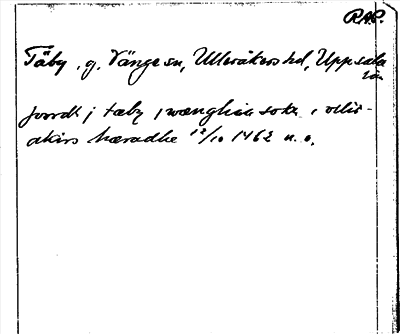 RAP.
Täby. g. Vänge sn, Ulleråkers hd, Uppsala
län
jordh j tæby j wænghia sokn i vllir-
akirs hæradhe 12/10 1462 n. o.